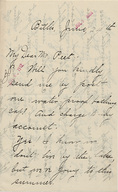 My Dear Mr Peet
Will you kindly
send me by post
one water proof bathing
cap? And charge to my
account.
Yes I know we
don't live by the sea,
but we're going to this
summer